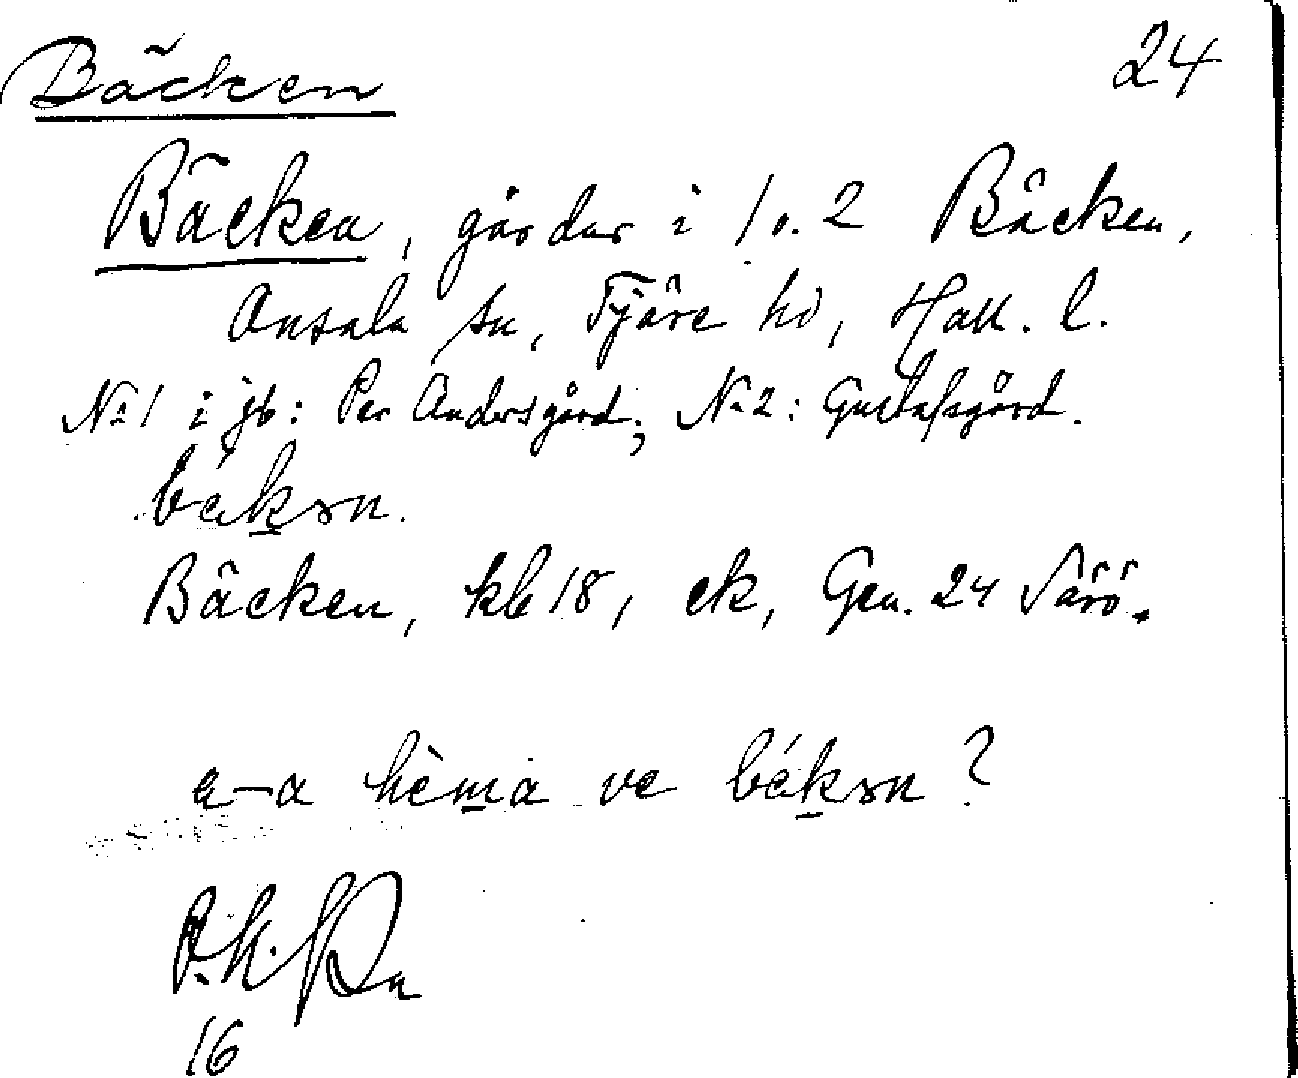 Bäcken 24
Bäcken, gårdar i 1 o. 2 Bäcken,
Onsala sn, Fjäre hd, Hall. l.
No 1 i jb: Per Andersgård; No 2: Gustafsgård.
bäkən.
Bäcken, kb 18, ek, Gen. 24 Särö.
a-a hèma ve bäkən?
16